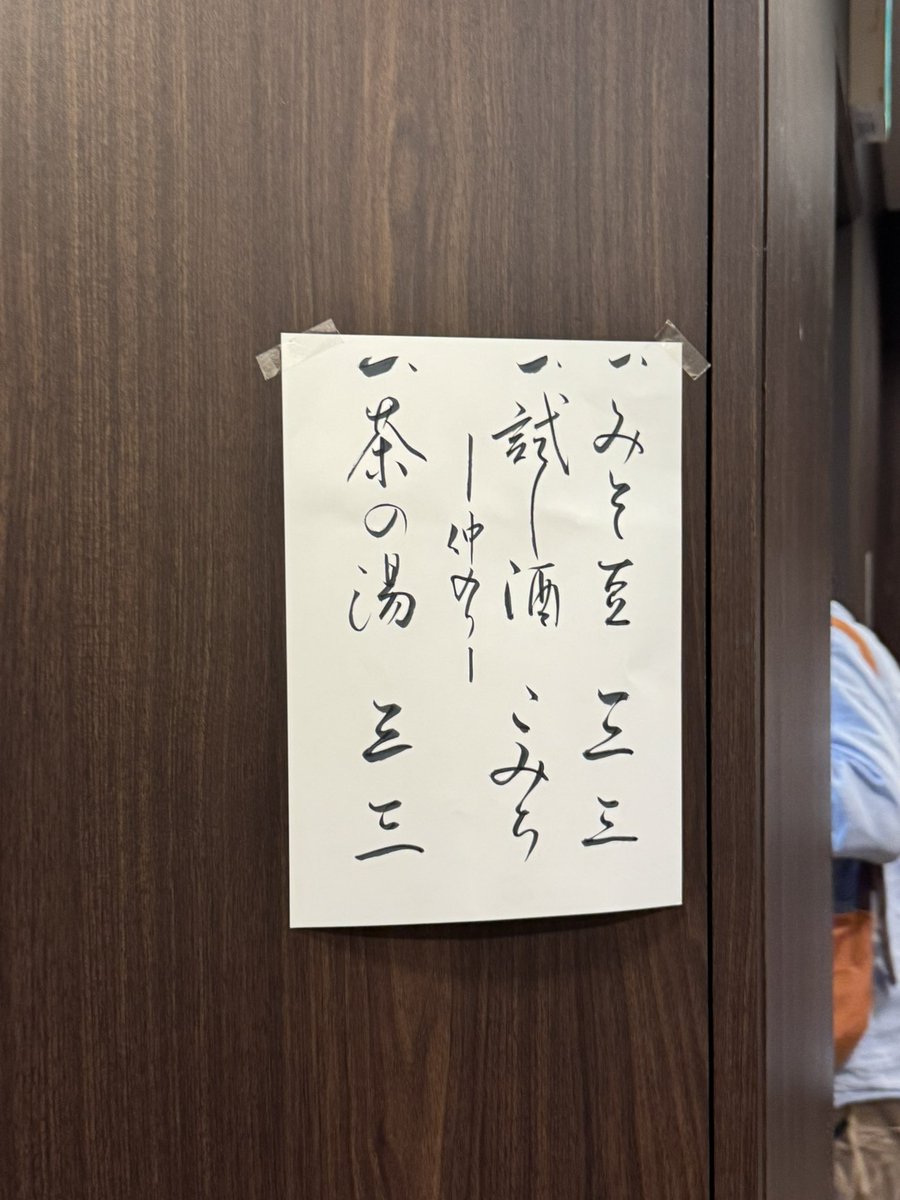 一、みそ豆 三三
一、試し酒 こみち
―仲入り―
一、茶の湯 三三